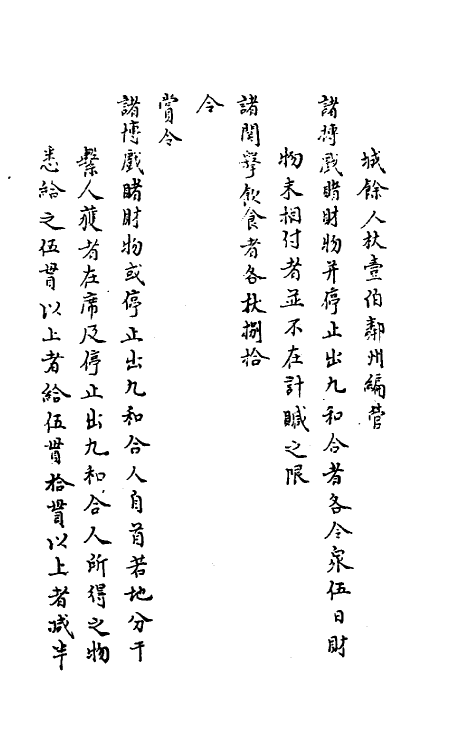 城餘人杖壹伯鄰州編管
諸博戲賭財物并停止出九和合者各令衆伍日財
物未相付者並不在計贓之限
諸開㩇飲食者各杖捌拾
令
賞令
諸博戲賭財物或停止出九和合人自首若地分干
繫人獲者在席及停止出九和合人所得之物
悉給之伍貫以上者給伍貫拾貫以上者减半